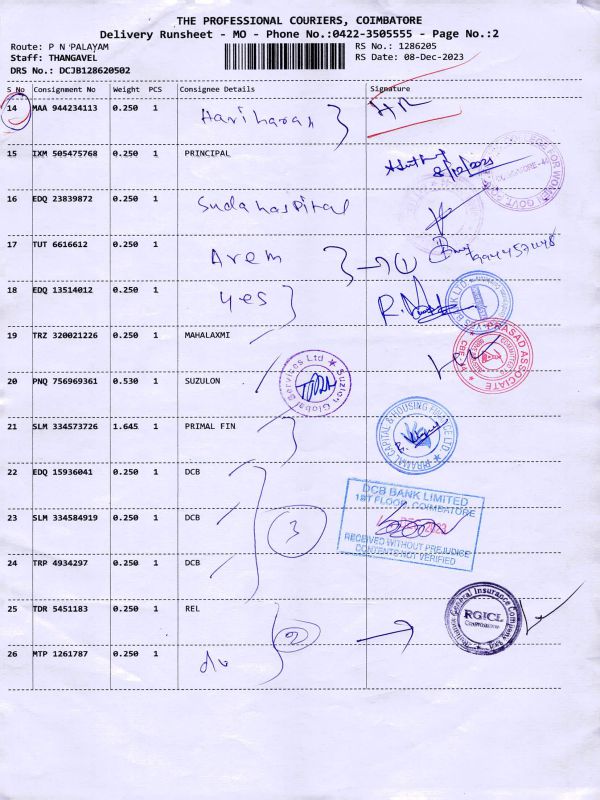 THE PROFESSIONAL COURIERS, COIMBATORE
Delivery Runsheet - MO - Phone No.:0422-3505555 - Page No.:2
Route: P N PALAYAM RS No.: 1286205
Staff: THANGAVEL RS Date: 08-Dec-2023
DRS No.: DCJB128620502
S No Consignment No Weight PCS Consignee Details Signature
14 MAA 944234113 0.250 1 Hariharan HR
15 IXM 505475768 0.250 1 PRINCIPAL
16 EDQ 23839872 0.250 1 Suda hospital
17 TUT 6616612 0.250 1 Arem 1
18 EDQ 13514012 0.250 1 yes
19 TRZ 320021226 0.250 1 MAHALAXMI
PRASAD ASSOCIATE
20 PNQ 756969361 0.530 1 SUZULON
Suzlon Global Services Ltd
21 SLM 334573726 1.645 1 PRIMAL FIN
PIRAMAL CAPITAL & HOUSING FINANCE LTD
22 EDQ 15936041 0.250 1 DCB
DCB BANK LIMITED
1ST FLOOR, COIMBATORE
23 SLM 334584919 0.250 1 DCB 3
RECEIVED WITHOUT PREJUDICE
CONTENTS NOT VERIFIED
24 TRP 4934297 0.250 1 DCB
25 TDR 5451183 0.250 1 REL 2
Reliance General Insurance Company Ltd
RGICL
26 MTP 1261787 0.250 1 du